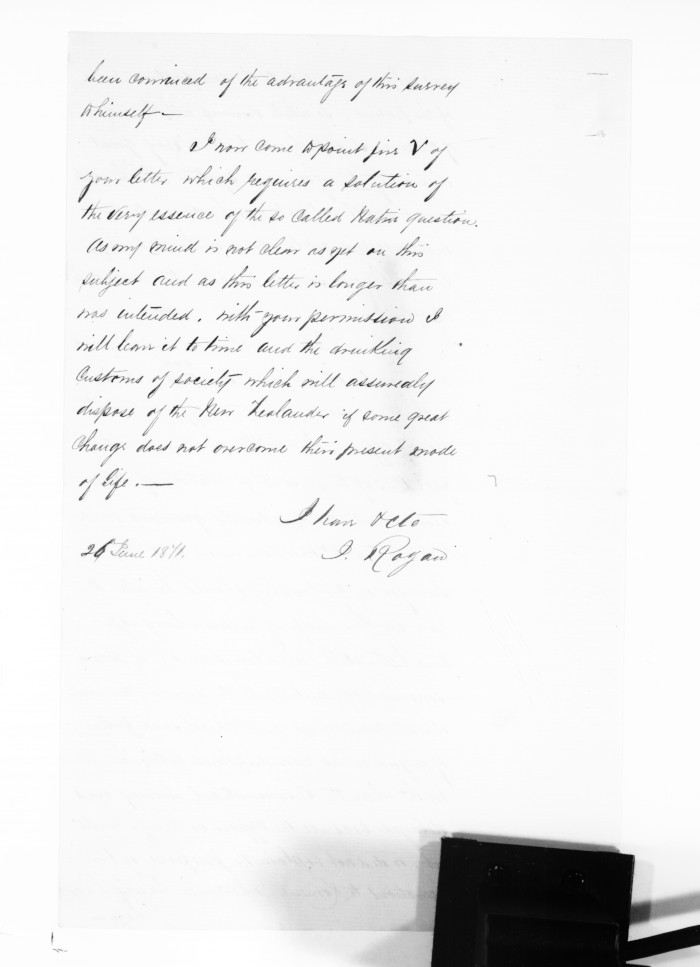 been convinced of the advantage of this survey
to himself —
I now come to point five V of
your letter which requires a solution of
the very essence of the so called Native question.
As my mind is not clear as yet on this
subject and as this letter is longer than
was intended, with your permission I
will leave it to time and the drinking
customs of society which will assuredly
dispose of the New Zealander if some great
change does not overcome their present mode
of life. —
I have &cto
J. Rogan
26 June 1871.